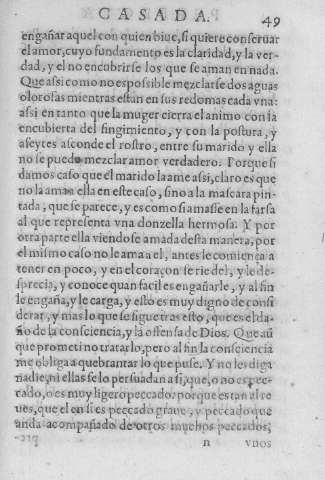 CASADA. 49
engañar aquel con quien biue, si quiere conseruar
el amor, cuyo fundamento es la claridad, y la ver-
dad, y el no encubrirse los que se aman en nada.
Que assi como no es possible mezclarse dos aguas
olorosas mientras estan en sus redomas cada vna:
assi en tanto que la muger cierra el animo con la
encubierta del fingimiento, y con la postura, y
afeytes asconde el rostro, entre su marido y ella
no se puede mezclar amor verdadero. Porque si
damos caso que el marido la ame assi, claro es que
no la ama a ella en este caso, sino a la mascara pin-
tada, que se parece, y es como si amasse en la farsa
al que representa vna donzella hermosa. Y por
otra parte ella viendose amada desta manera, por
el mismo caso no le ama a el, antes le comiença a
tener en poco, y en el coraçon se rie del, y le des-
precia, y conoce quan facil es engañarle, y al fin
le engaña, y le carga, y esto es muy digno de consi
derar, y mas lo que se sigue tras esto, que es el da-
ño de la consciencia, y la offensa de Dios. Que aũ
que prometi no tratarlo, pero al fin la consciencia
me obliga a quebrantar lo que puse. Y no les diga
nadie, ni ellas se lo persuadan a si, que, o no es pec-
cado, o es muy ligero peccado: porque es tan al re
ues, que el en si es peccado graue, y peccado que
anda acompañado de otros muchos peccados,
n vnos